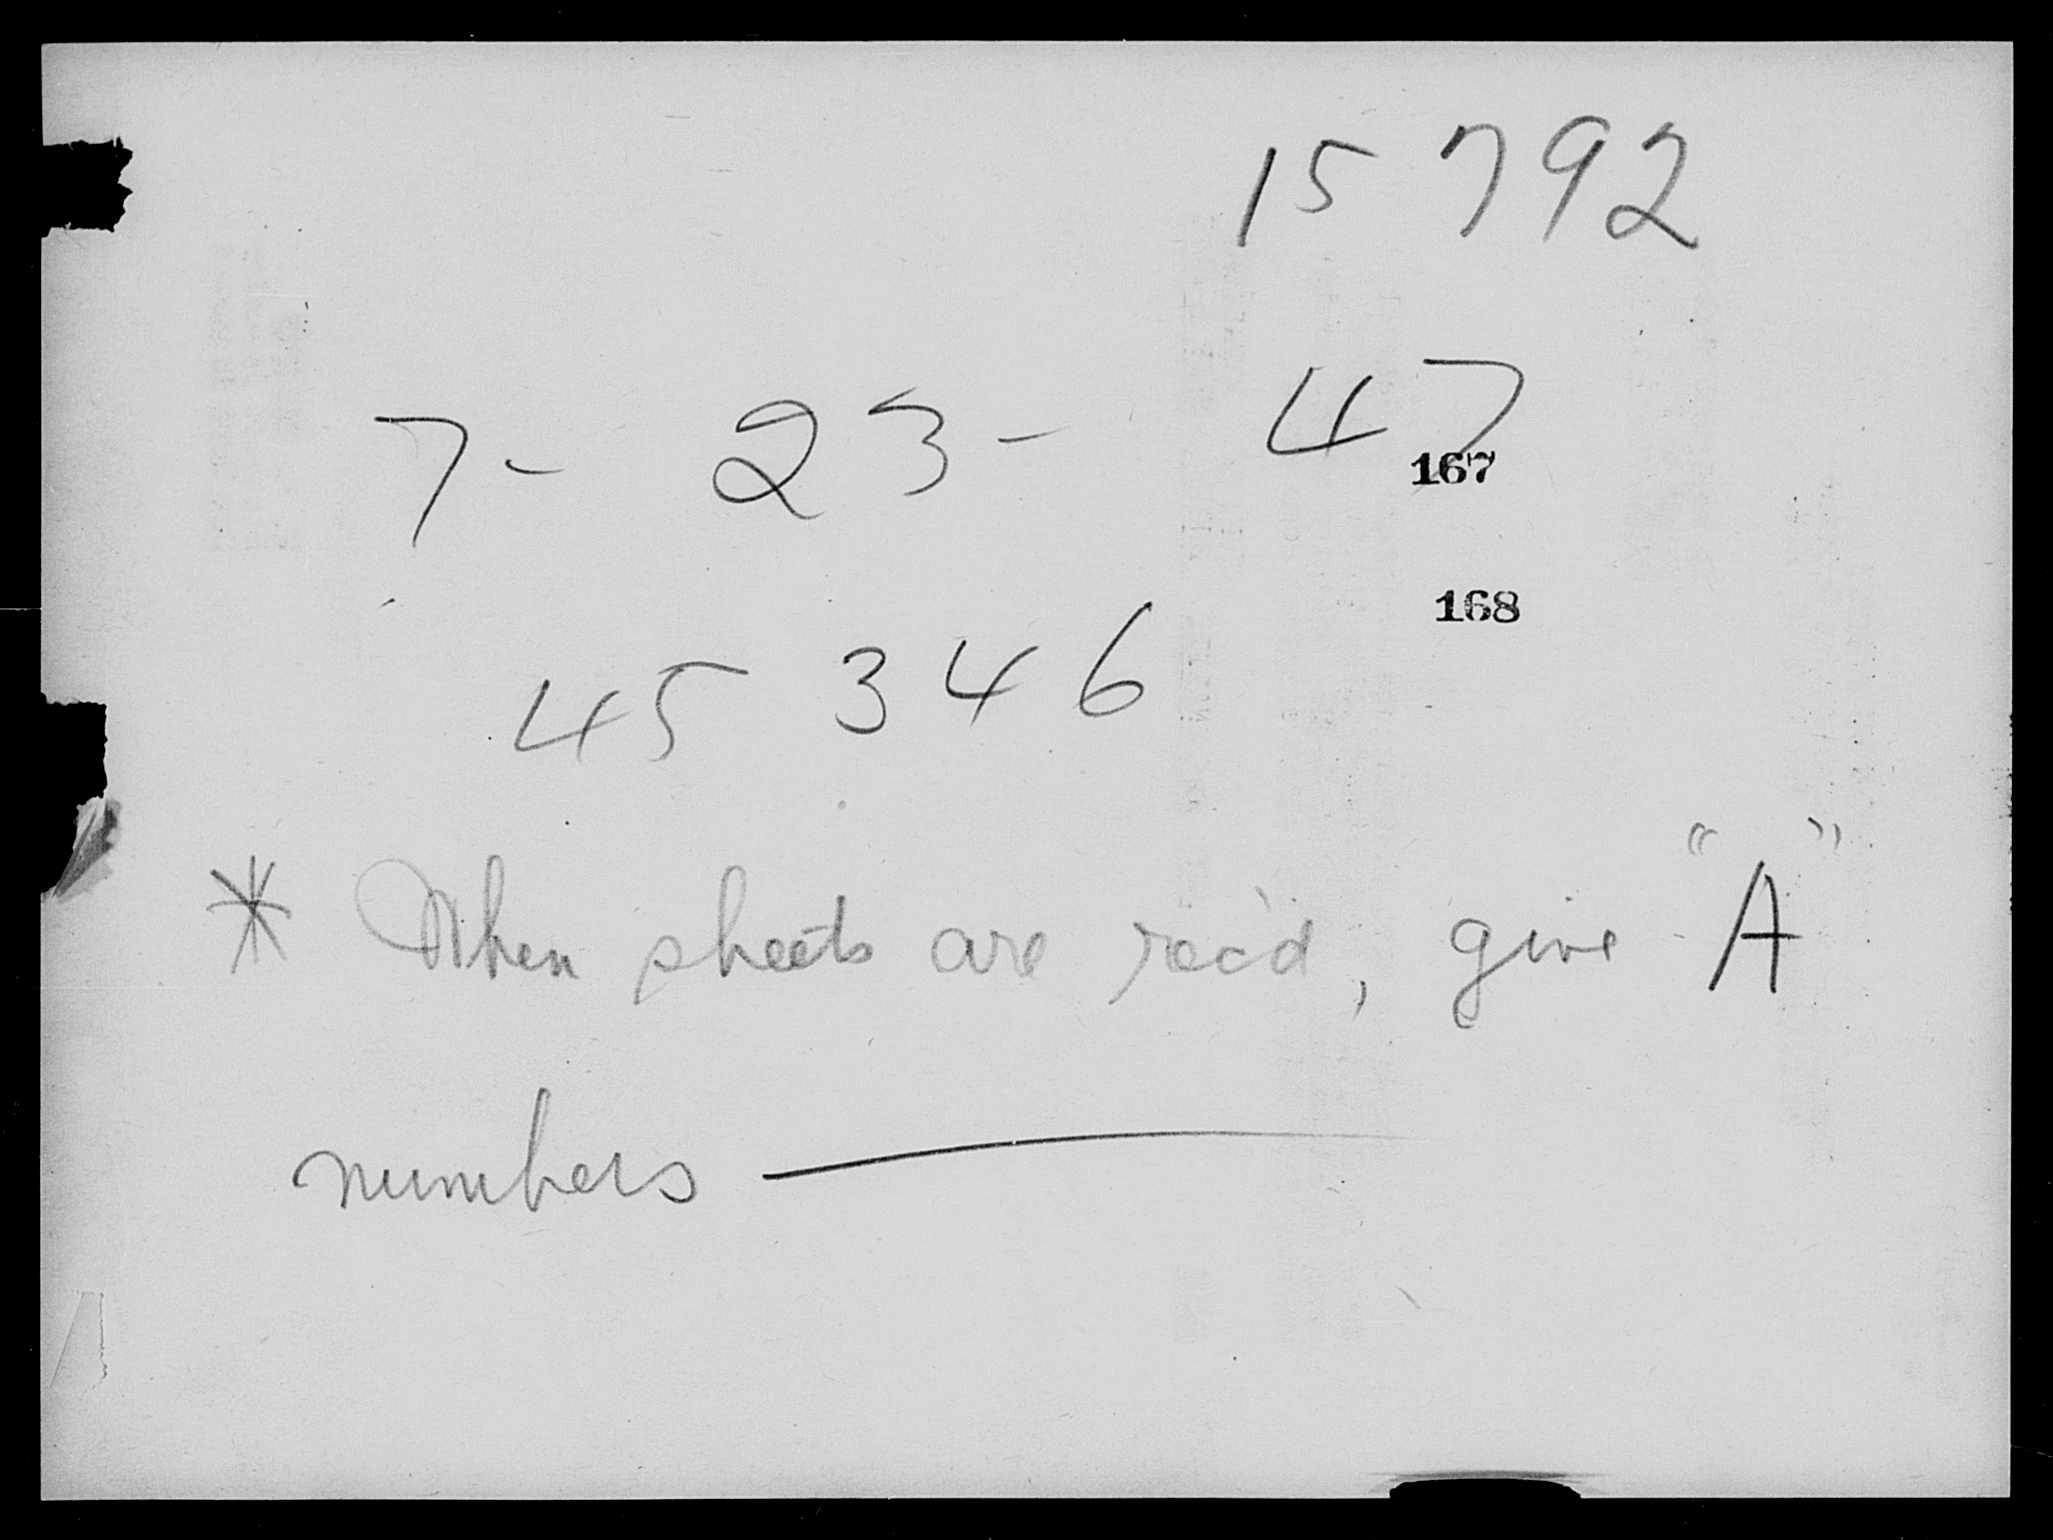 15 792
7- 23- 47
167
168
45 346
* When sheets are rec'd, give "A"
numbers —